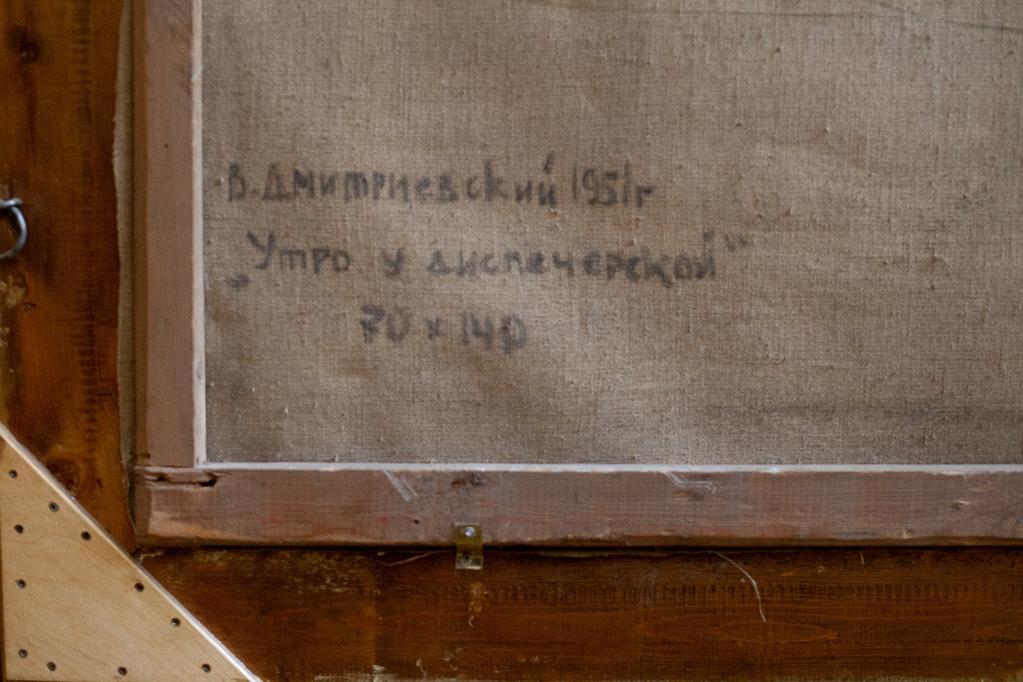 В. Дмитриевский 1951г
„Утро у диспечерской"
70 x 140